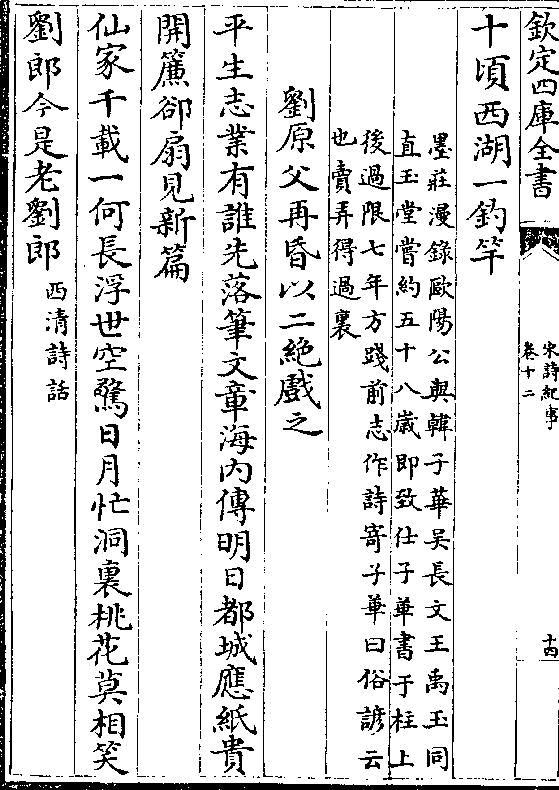 欽定四庫全書
宋詩紀事
卷十二
十四
十頃西湖一釣竿
墨莊漫錄歐陽公與韓子華吳長文王禹玉同
直玉堂嘗約五十八歲即致仕子華書于柱上
後過限七年方踐前志作詩寄子華曰俗諺云
也賣弄得過裏
劉原父再昏以二絶戲之
平生志業有誰先落筆文章海内傳明日都城應紙貴
開簾卻扇見新篇
仙家千載一何長浮世空驚日月忙洞裏桃花莫相笑
劉郎今是老劉郎西清詩話